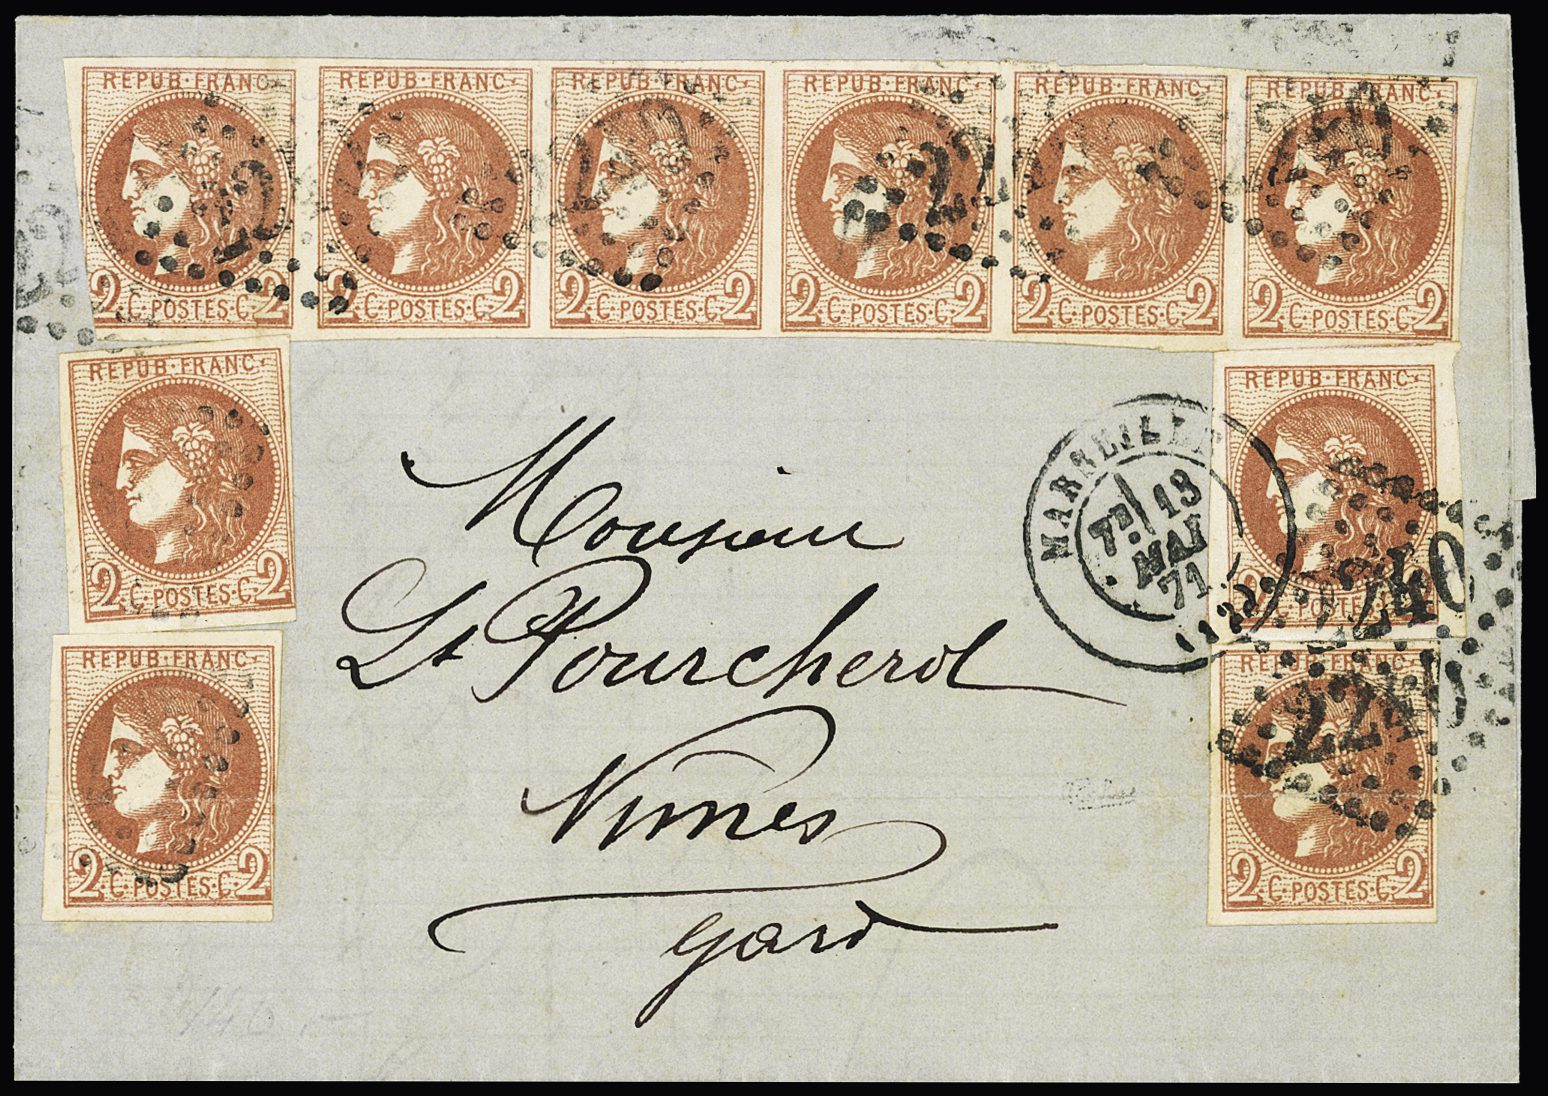 REPUB·FRANC· REPUB·FRANC· REPUB·FRANC· REPUB·FRANC· REPUB·FRANC· REPUB·FRANC·
2·C·POSTES·C·2 2·C·POSTES·C·2 2·C·POSTES·C·2 2·C·POSTES·C·2 2·C·POSTES·C·2 2·C·POSTES·C·2
REPUB·FRANC·
2·C·POSTES·C·2
REPUB·FRANC·
2·C·POSTES·C·2
Monsieur
Lt Pourcherol
Nimes
gard
MARSEILLE
7E 13
MAI
71
REPUB·FRANC·
2240
REPUB·FRANC·
2240
2·C·POSTES·C·2